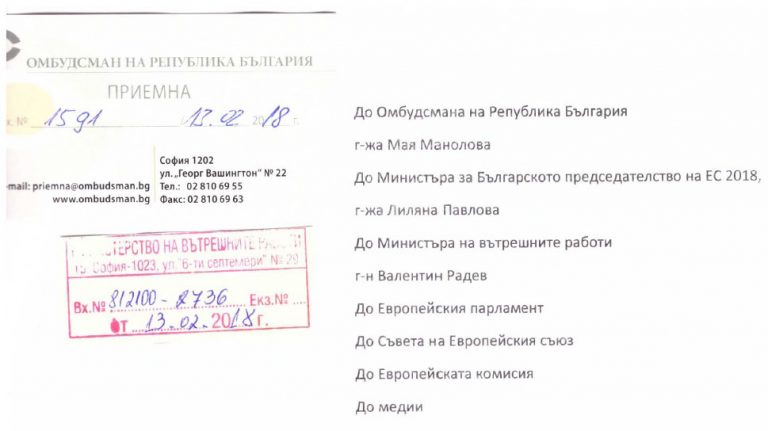 ОМБУДСМАН НА РЕПУБЛИКА БЪЛГАРИЯ
ПРИЕМНА
вх. № 1591 13.02 2018 г.
София 1202
ул. „Георг Вашингтон" № 22
e-mail: priemna@ombudsman.bg Тел.: 02 810 69 55
www.ombudsman.bg Факс: 02 810 69 63
МИНИСТЕРСТВО НА ВЪТРЕШНИТЕ РАБОТИ
гр. София-1023, ул. "6-ти септември" № 29
Вх.№ 812100-2736 Екз.№
от 13.02.2018 г.
До Омбудсмана на Република България
г-жа Мая Манолова
До Министъра за Българското председателство на ЕС 2018,
г-жа Лиляна Павлова
До Министъра на вътрешните работи
г-н Валентин Радев
До Европейския парламент
До Съвета на Европейския съюз
До Европейската комисия
До медии